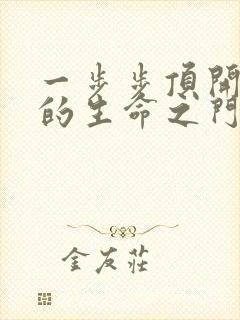 一步步頂開
的生命之門
金友莊